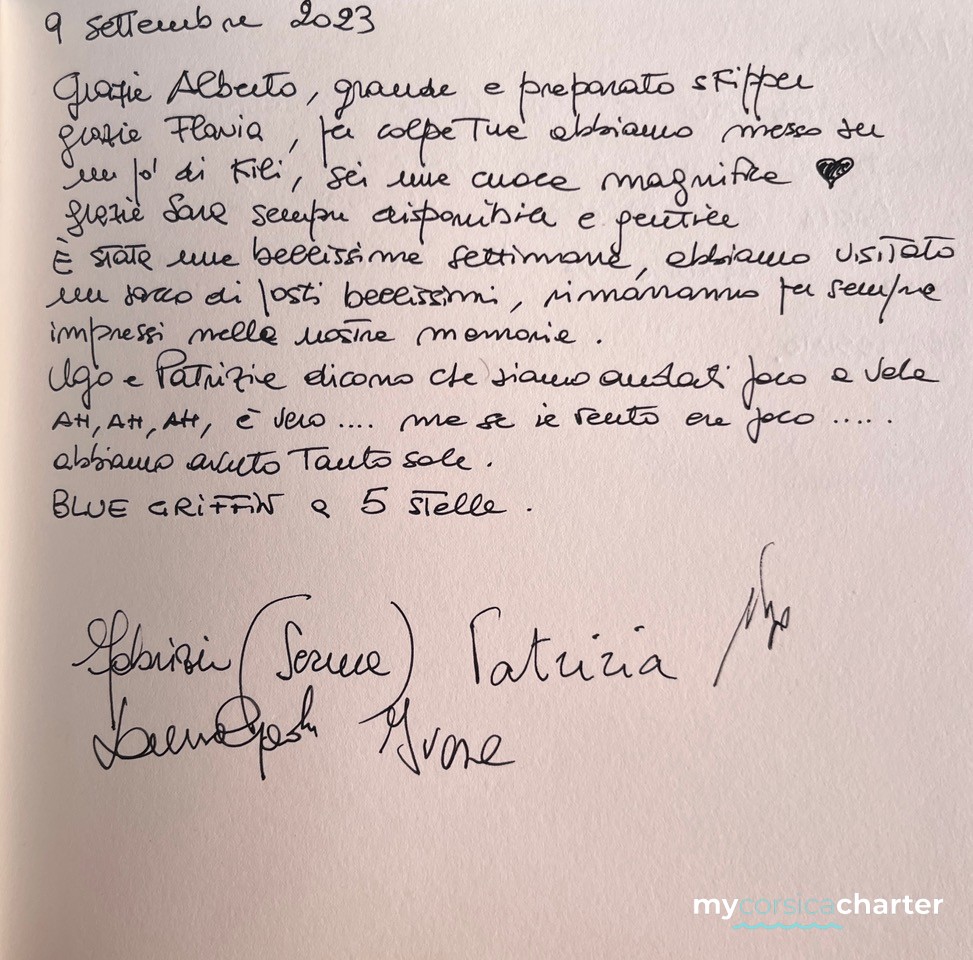 9 settembre 2023
Grazie Alberto, grande e preparato skipper
grazie Flavia, per colpa Tua abbiamo messo su
un po' di Kili, sei una cuoca magnifica
grazie Sara sempre disponibile e gentile
È stata una bellissima settimana, abbiamo visitato
un sacco di posti bellissimi, rimarranno per sempre
impressi nella nostra memoria.
Ugo e Patrizia dicono che siamo andati poco a vela
AH, AH, AH, è vero .... ma se il vento era poco .....
abbiamo avuto Tanto sole.
BLUE GRIFFIN a 5 stelle.
Patrizia Ugo
Ivone
mycorsicacharter